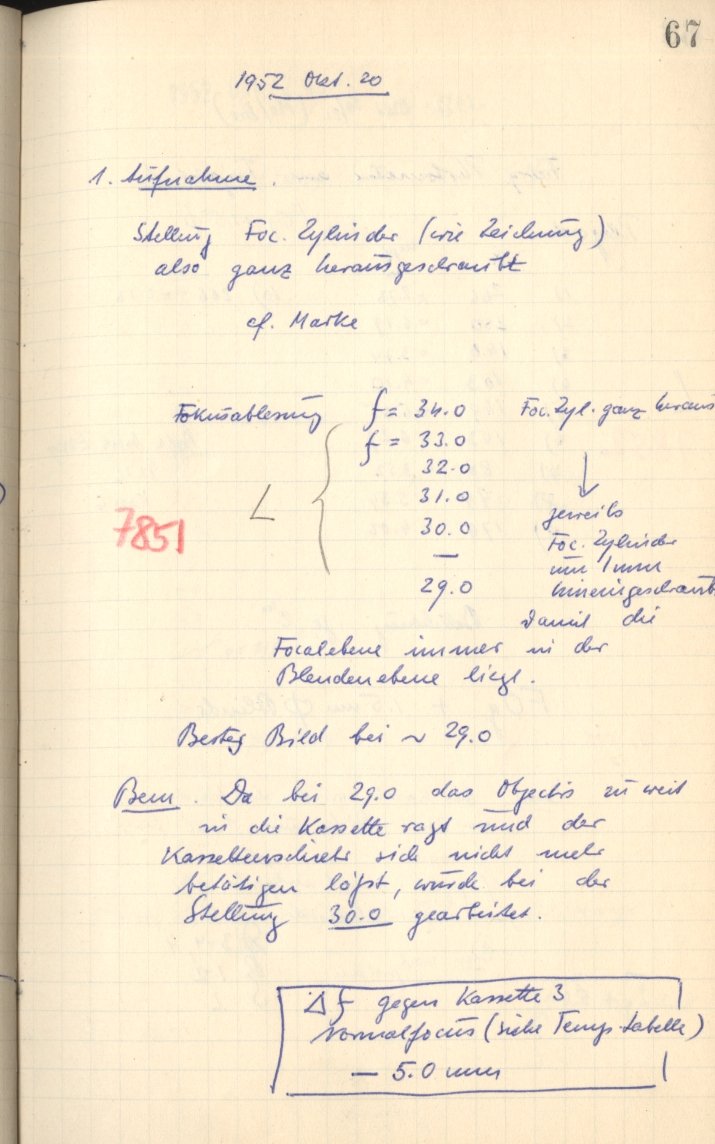 67
1952 Okt. 20
1. Aufnahme.
Stellung Foc. Zylinder (wie Zeichnung)
also ganz herausgeschraubt
cf. Marke
Fokusablesung f = 34.0 Foc. Zyl. ganz heraus
f = 33.0
32.0
31.0
30.0 jeweils
— Foc. Zylinder
um 1 mm
29.0 hineingeschraubt
damit die
Focalebene immer in der
Blendenebene liegt.
7851
Bestes Bild bei ~ 29.0
Bem. Da bei 29.0 das Objectiv zu weit
in die Kassette ragt und der
sich nicht mehr
betätigen läßt, wurde bei der
Stellung 30.0 gearbeitet.
Δf gegen Kassette 3
Normalfocus (siehe Temp. tabelle)
— 5.0 mm